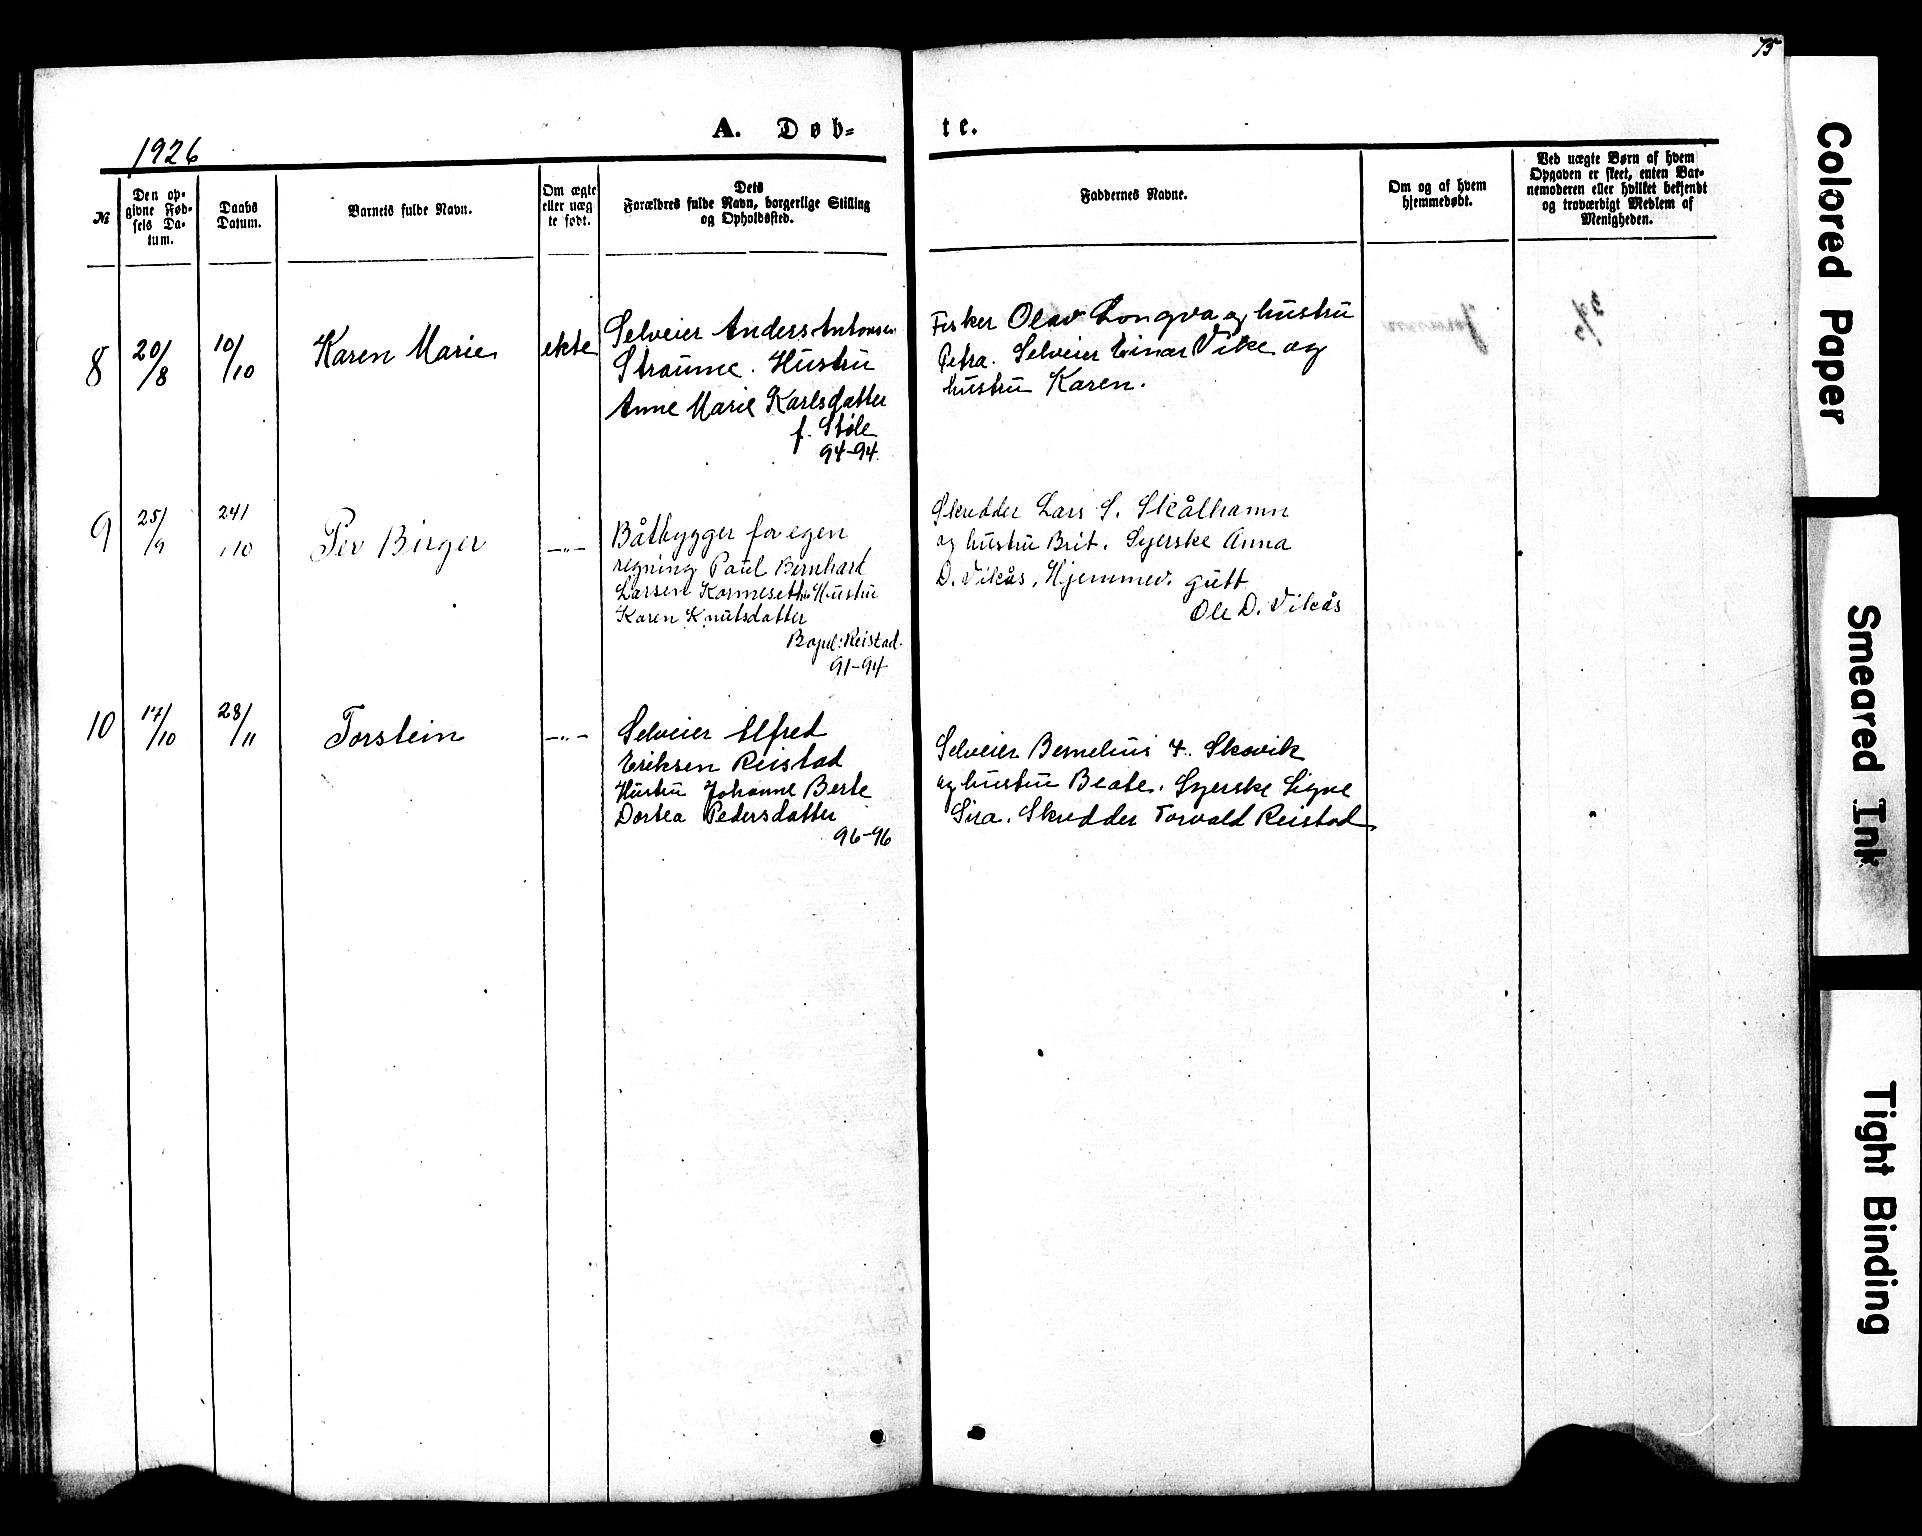 75
1926
A. Døb-
te.
№
Den op-
givne Fød-
sels Da-
tum.
Daabs
Datum.
Barnets fulde Navn.
Om ægte
eller uæg
te født.
Dets
Forældres fulde Navn, borgerlige Stilling
og Opholdssted.
Faddernes Navne.
Om og af hvem
hjemmedøbt.
Ved uægte Børn af hvem
Opgaven er skeet, enten Bar-
nemoderen eller hvilket bekjendt
og troværdigt Medlem af
Menigheden.
8
20/8
10/10
Karen Marie
ekte
Selveier Anders Antonsen
Straume. Hustru
Anne Marie Karlsdatter
f. Støle
94-94
Fisker Olav Longva og hustru
Petra. Selveier Einar Vike og
hustru Karen.
9
25/9
24/10
Per Birger
-„-
Båtbygger for egen
regning Paul Bernhard
Larsen Hustru
Karen Knutsdatter
Bopel: Reistad.
91-94
Skredder Lars S. Skålhamn
og hustru Brit. Syerske Anna
D. Vikås. Hjemmev. gutt
Ole D. Vikås
10
17/10
28/11
Torstein
-„-
Selveier Alfred
Eriksen Reistad
Hustru Johanne Berte
Dortea Pedersdatter
96-96
Selveier Skovik
og hustru Beate. Syerske Signe
Skredder Torvald Reistad
Colored Paper
Smeared Ink
Tight Binding